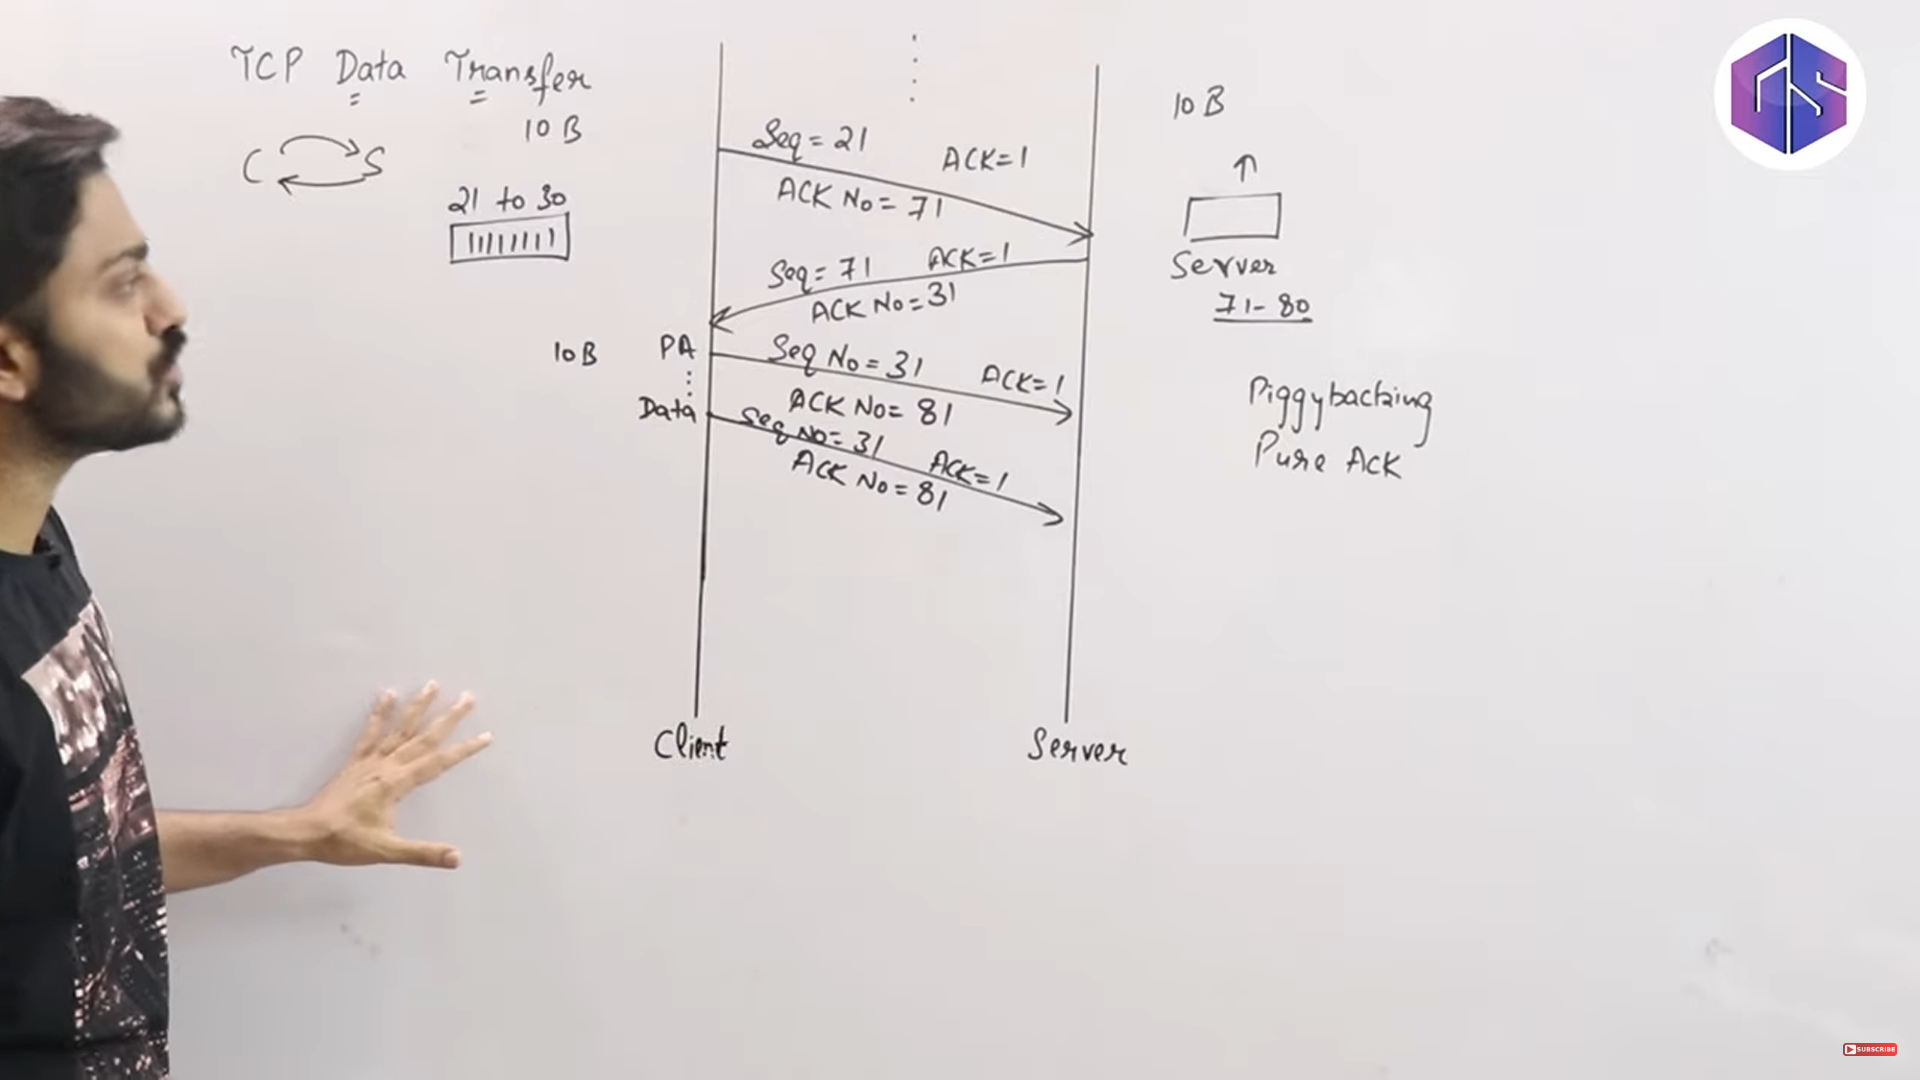 TCP Data Transfer
10 B
C S
21 to 30
Seq = 21 ACK=1
ACK No = 71
Seq = 71 ACK=1
ACK No = 31
10B PA Seq No = 31 ACK=1
ACK No = 81
Data Seq No = 31 ACK=1
ACK No = 81
Client Server
10 B
Server
71-80
Piggybacking
Pure Ack
GS
SUBSCRIBE